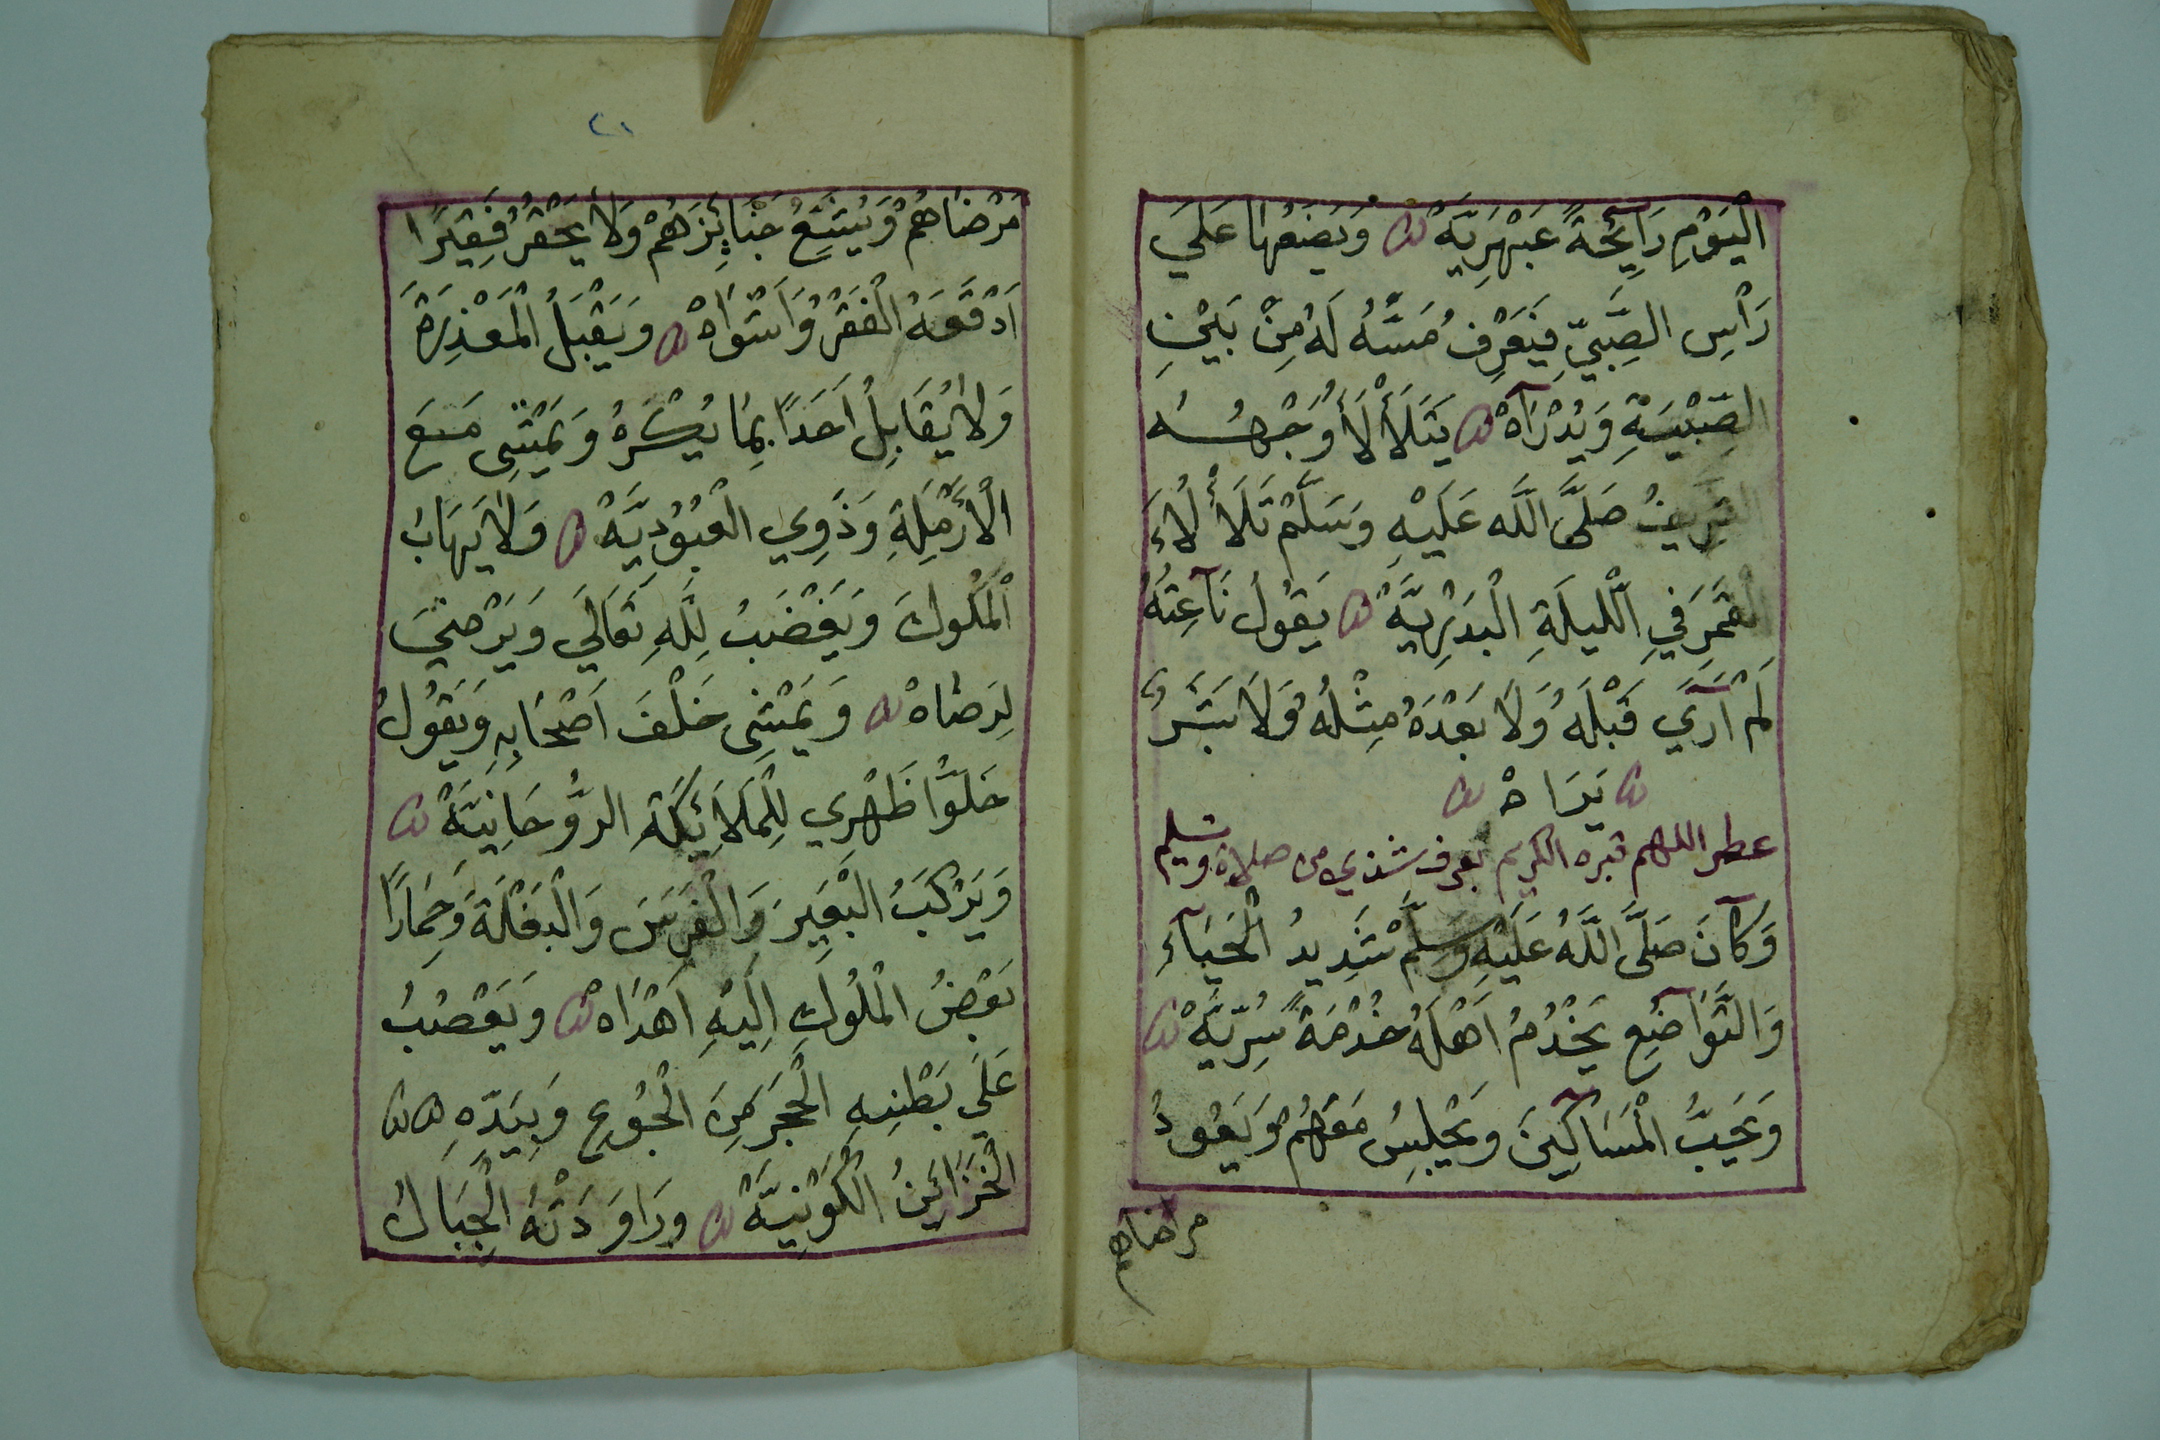 الْيَوْمِ رَآيِحَةً عَبْهَرِيَّةْ وَيَضَعُهَا عَلَيَ
رَأْسِ الصَّبِيِّ فَيَعْرِفُ مَسَّهُ لَهُ مِنْ بَيْنِ
الصِّبْيَةِ وَيُدْرَآهْ يَتَلَأْلَأُ وَجْهُهُ
الشَّرِيفُ صَلَّى اللَّه عَلَيْهِ وَسَلَّمْ تَلَأْلُاءَ
الْقَمَرِ فِي اللَّيلَةِ الْبَدْرِيَّةْ يَقُولُ نَآعِتُهُ
لَمْ آرَيَ قَبْلَهُ وَلَا بَعْدَهُ مِثْلُهُ وَلَا بَشَرٌ
يَرَاهْ
عطر اللهم قبره الكريم بعرف شذي من صلاة وتسليم
وَكَآنَ صَلَّى اللَّهُ عَلَيْهِ وَسَلَّمْ شَدِيدُ الْحَيَآءِ
وَالتَّوَاضُعِ يَخْدُمُ اَهْلَهُ خُدْمَةً سِرِّيَّةْ
وَيُحِبُّ الْمَسَاكِينَ وَيَجْلِسُ مَعَهُمْ وَيَعُودُ
مرضاهم
٢١
مَرْضَاهُمْ وَيُتَبِّعُ جَنَايِزَهُمْ وَلَا يَحْقِرُ فَقِيرًا
اَدْقَعَهُ الْفَقْرُ وَاَشْوَاهْ وَيَقْبَلُ الْمَعْذِرَةَ
وَلَا يُقَابِلُ اَحَدًا بِمَا يُكْرَهُ وَيَمْشِى مَعَ
الْأَرْمَلَةِ وَذَوِي الْعُبُودِيَّةْ وَلَا يَهَابُ
الْمُلُوكَ وَيَغْضَبُ لِلَّهِ تَعَالَي وَيَرْضَيَ
لِرَضَاهْ وَيَمْشِى خَلْفَ اَصْحَابِهِ وَيَقُولُ
خَلَّوْا ظَهْرِي لِلْمَلَائِكَةِ الرُّوحَانِيَّةْ
وَيَرْكَبُ الْبَعِيرَ وَالْفَرَسَ وَالْبَغْلَةَ وَحِمَارًا
بَعْضُ الْمُلُوكِ اِلَيْهِ اَهْدَاهْ وَيَعْصُبُ
عَلَي بَطْنِهِ الْحَجَرَ مِنَ الْجُوعِ وَبِيَدِّهِ
الْخَزَائِنُ الْكَوْنِيَّةْ وَرَاوَدَتْهُ الْجِبَالُ